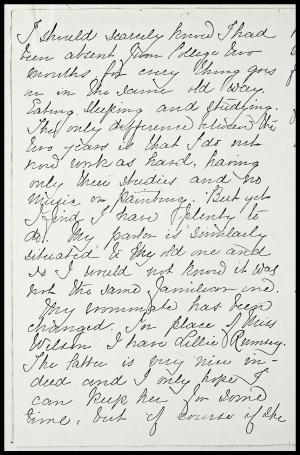 I should scarcely know I had
been absent from College two
months, for every thing goes
on in the same old way.
Eating sleeping and studying.
The only difference between the
two years is that I do not
work as hard, having
only three studies and no
music or painting. But yet
I find I have plenty to
do. My parlor is similarly
situated to the old one and
so I would not know it was
not the same familiar one.
My roommate has been
changed. In place of Miss
Wilson I have Lillie Rumsey.
The latter is very nice in-
deed and I only hope I
can keep her for some
time, but of course if she